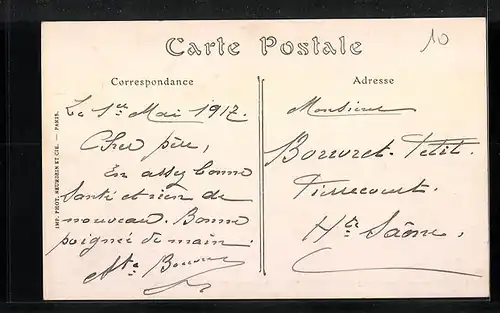 Carte Postale
10
Correspondance
Adresse
Le 1er Mai 1917.
Cher père,
En assez bonne
santé et rien de
nouveau. Bonne
poignée de main.
Monsieur
Bouvret-Petit.
Hte Saône.
IMP. PHOT. NEURDEIN ET CIE. — PARIS.